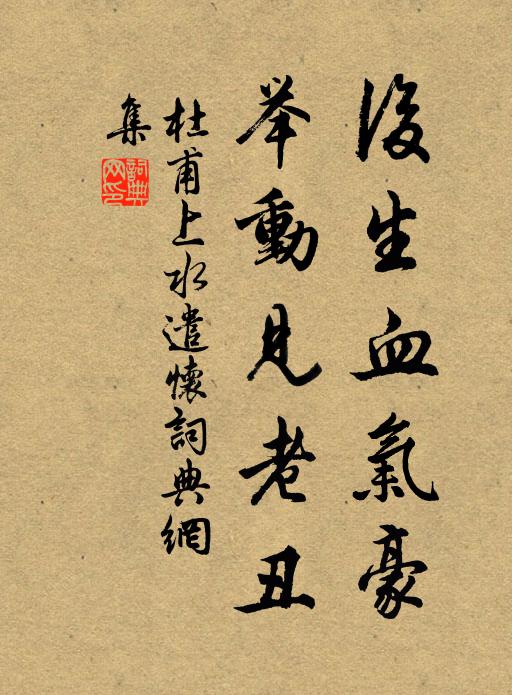 後生血氣豪
举動見老丑
杜甫上水遣懷詞典網
集
詞典
网印